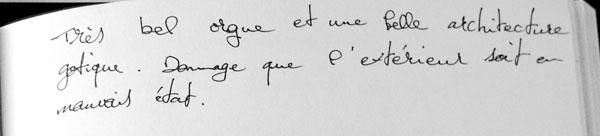 Très bel orgue et une belle architecture
gotique. Dommage que l'extérieur soit en
mauvais état.